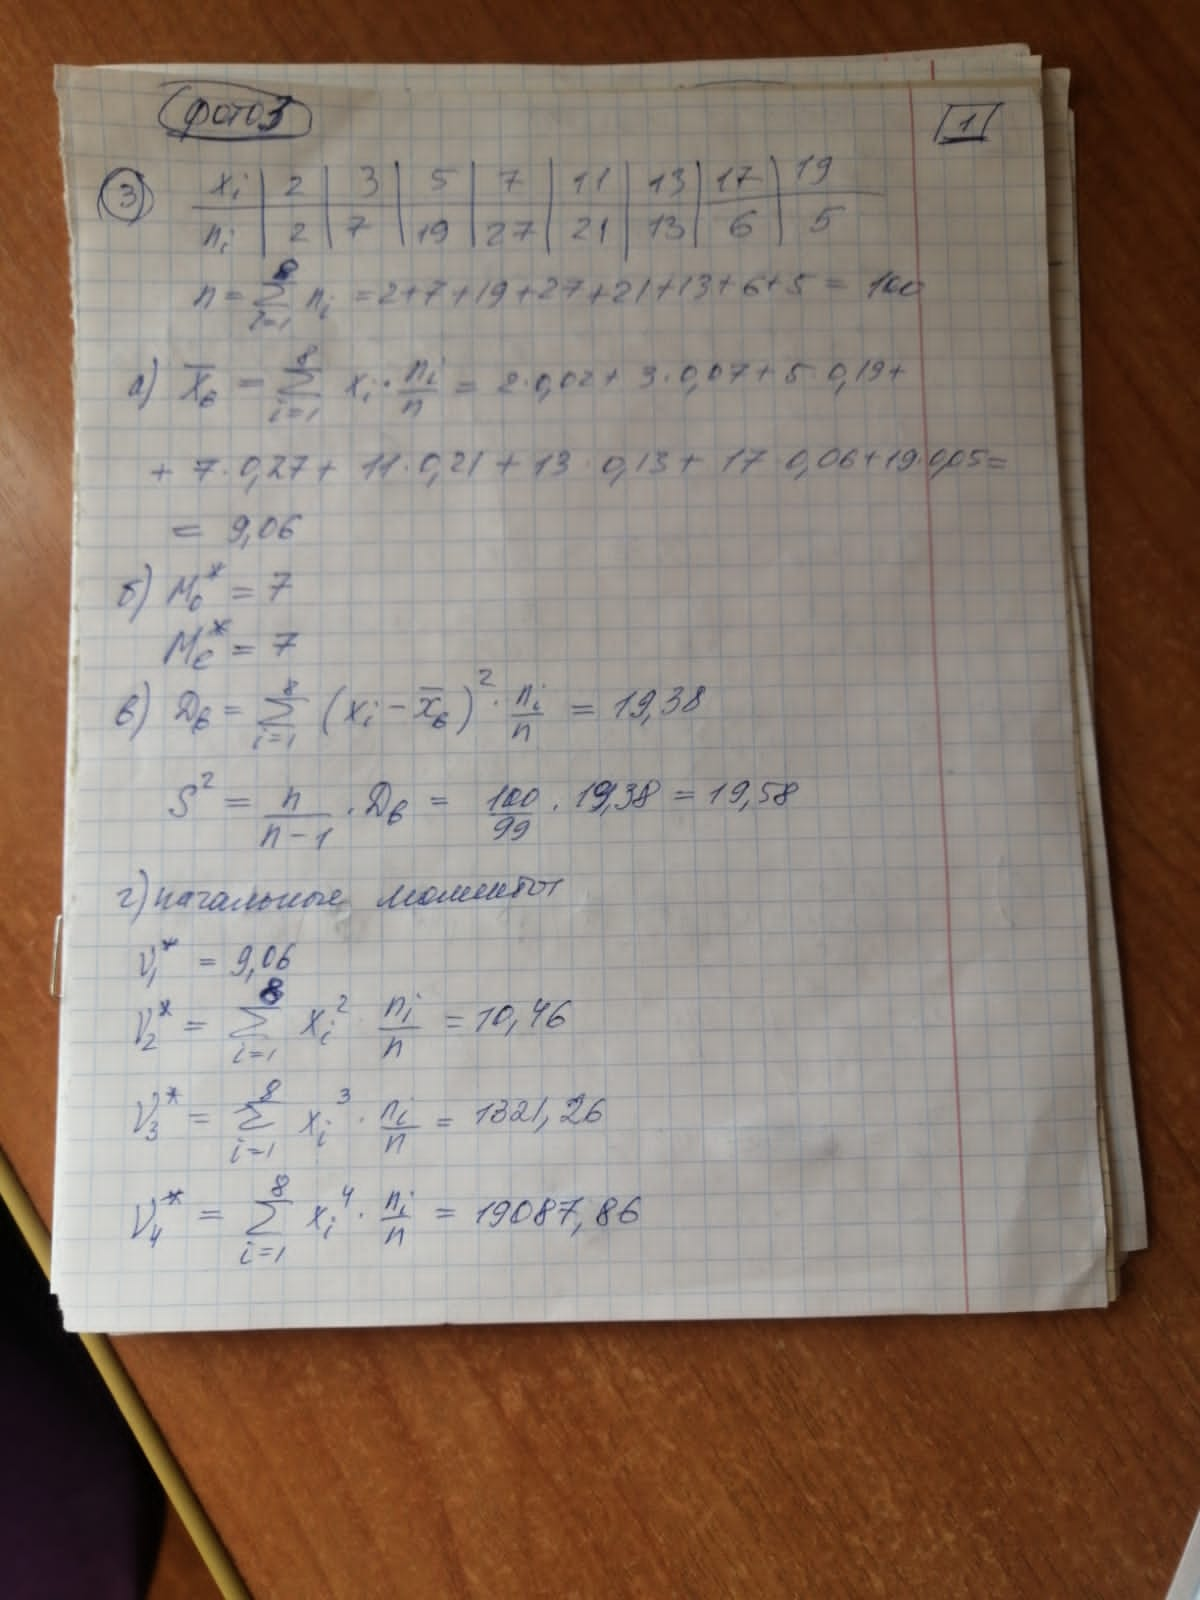 фото3
1
3 xi 2 3 5 7 11 13 17 19
ni 2 7 19 27 21 13 6 5
n = Σ_{i=1}^{8} ni = 2+7+19+27+21+13+6+5 = 100
а) x̄в = Σ_{i=1}^{8} xi · ni/n = 2·0,02+ 3·0,07+ 5·0,19+
+ 7·0,27+ 11·0,21 + 13·0,13+ 17·0,06+19·0,05=
= 9,06
б) Mo* = 7
Me* = 7
в) Дв = Σ_{i=1}^{8} (xi – x̄в)² · ni/n = 19,38
S² = n/(n-1) · Дв = 100/99 · 19,38 = 19,58
г) начальные моменты
ν₁* = 9,06
ν₂* = Σ_{i=1}^{8} xi² · ni/n = 10,46
ν₃* = Σ_{i=1}^{8} xi³ · ni/n = 1321,26
ν₄* = Σ_{i=1}^{8} xi⁴ · ni/n = 19087,86